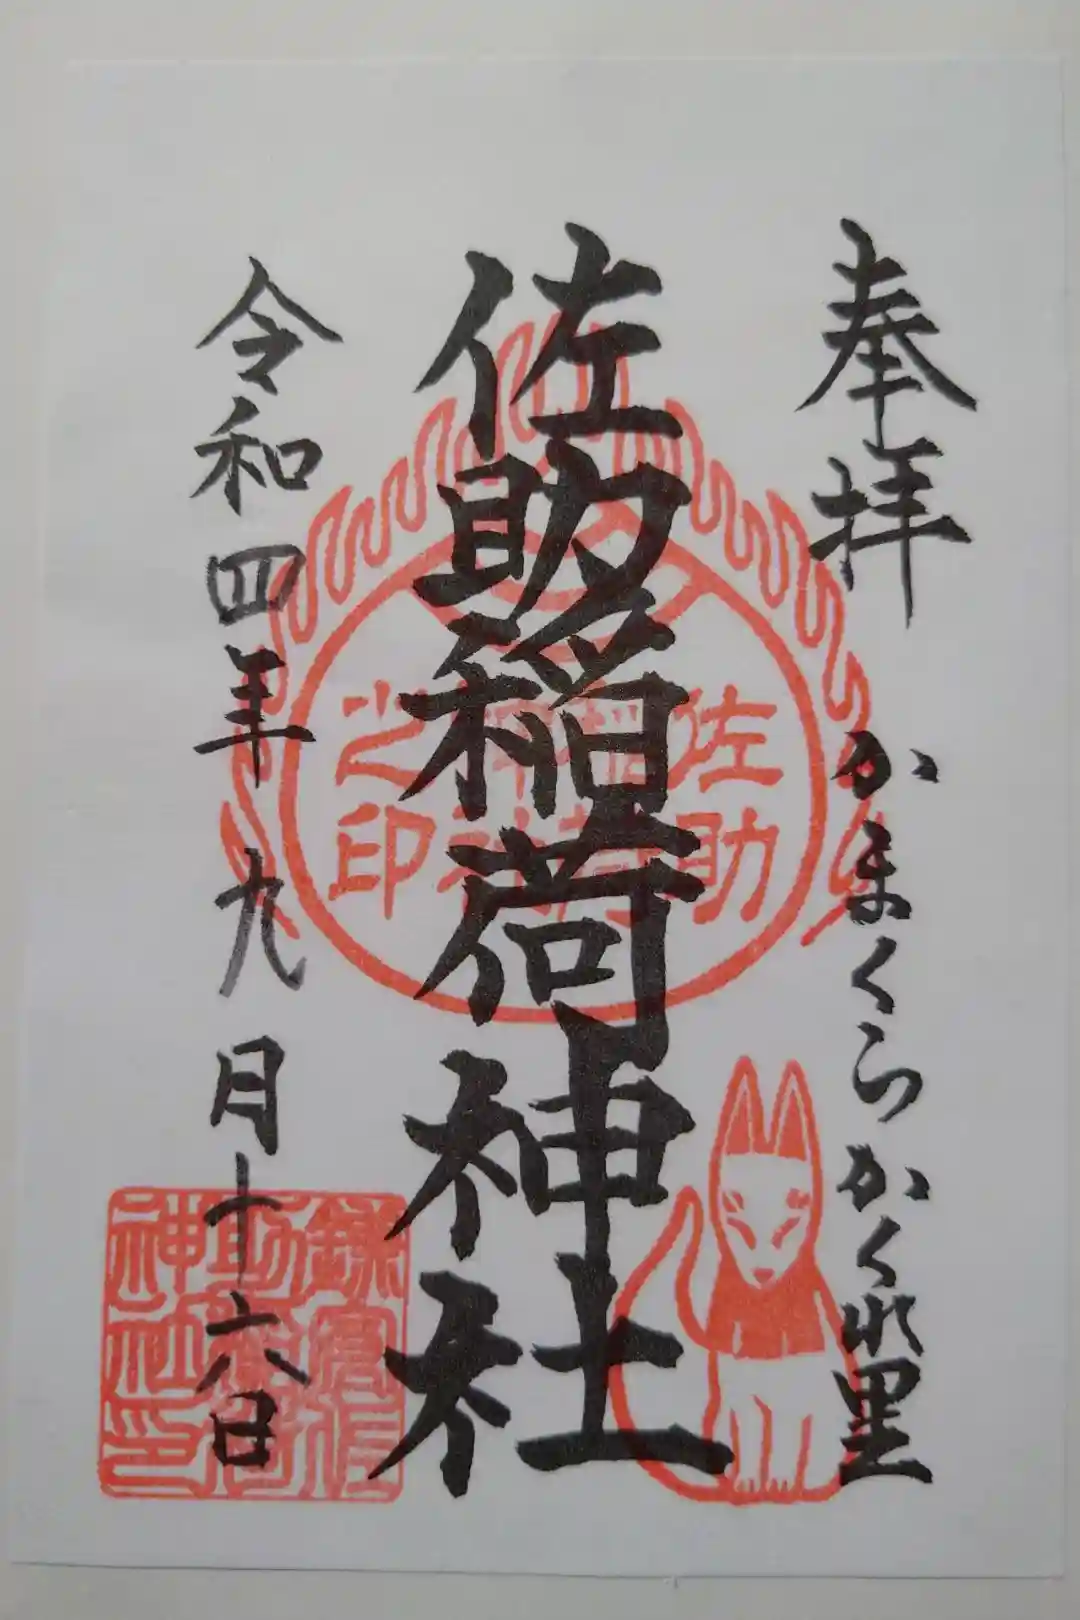 奉拝
かまくらかくれ里
佐助稲荷神社
令和四年九月十六日
佐助
稲荷
神社
之印